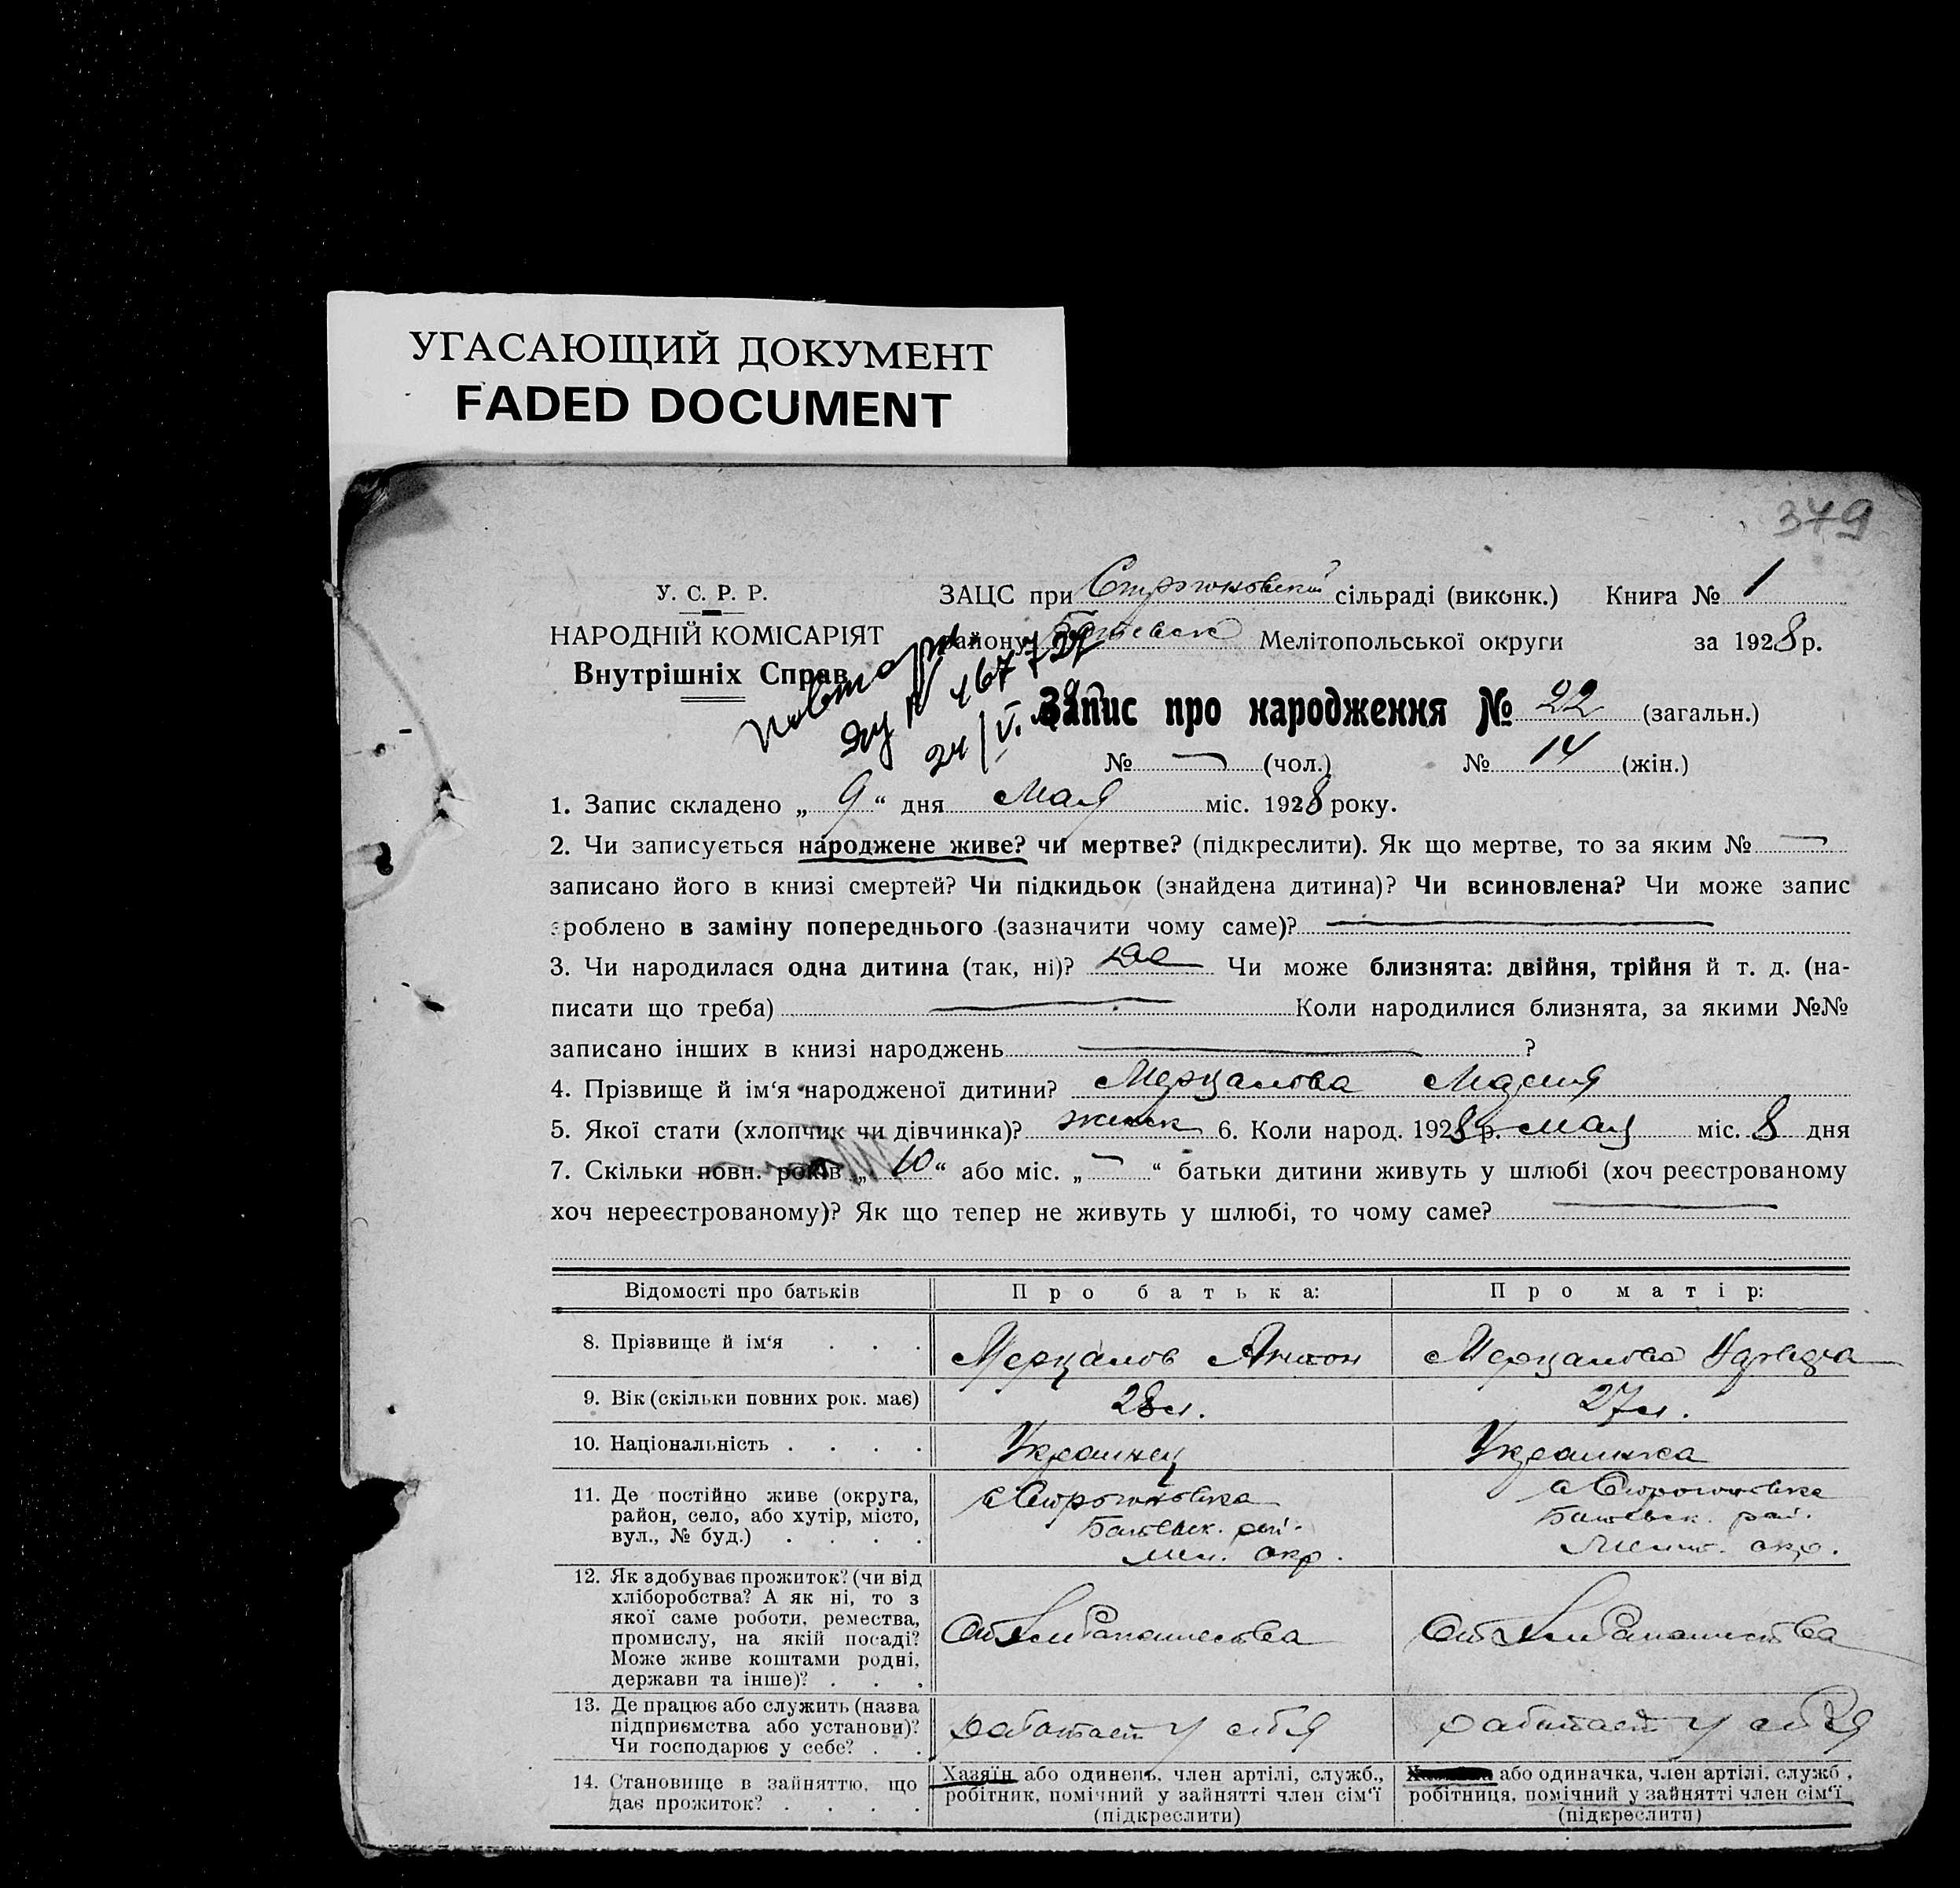 УГАСАЮЩИЙ ДОКУМЕНТ
FADED DOCUMENT
379
У. С. Р. Р.
НАРОДНІЙ КОМІСАРІЯТ
Внутрішніх Справ
ЗАЦС при Строгоновской сільраді (виконк.) Книга № 1
району Мелітопольської округи за 1928 р.
Запис про народження № 22 (загальн.)
№ — (чол.) № 14 (жін.)
1. Запис складено „ 9 “ дня Мая міс. 1928 року.
2. Чи записується народжене живе? чи мертве? (підкреслити). Як що мертве, то за яким № —
записано його в книзі смертей? Чи підкидьок (знайдена дитина)? Чи всиновлена? Чи може запис
зроблено в заміну попереднього (зазначити чому саме)? —
3. Чи народилася одна дитина (так, ні)? Да Чи може близнята: двійня, трійня й т. д. (на-
писати що треба) — Коли народилися близнята, за якими №№
записано інших в книзі народжень — ?
4. Прізвище й ім‘я народженої дитини? Мерцалова Мария
5. Якої стати (хлопчик чи дівчинка)? женск 6. Коли народ. 1928 р. мая міс. 8 дня
7. Скільки повн. років „ 10 “ або міс. „ — “ батьки дитини живуть у шлюбі (хоч реєстрованому
хоч нереєстрованому)? Як що тепер не живуть у шлюбі, то чому саме? —
Відомості про батьків Про батька: Про матір:
8. Прізвище й ім‘я . . . Мерцалов Антон Мерцалова
9. Вік (скільки повних рок. має) 28 л. 27 л.
10. Національність . . . . Украинец Украинка
11. Де постійно живе (округа,
район, село, або хутір, місто,
вул., № буд.) . . . .
с Строгоновка
рай.
Мел. окр.
с Строгоновка
рай.
Мелит. окр.
12. Як здобуває прожиток? (чи від
хліборобства? А як ні, то з
якої саме роботи, ремества,
промислу, на якій посаді?
Може живе коштами родні,
держави та інше)? . . .
От хлебопашества
От хлебопашества
13. Де працює або служить (назва
підприємства або установи)?
Чи господарює у себе? . .
работает у себя
работает у себя
14. Становище в зайняттю, що
дає прожиток? . . . .
Хазяїн або одинець, член артілі, служб.,
робітник, помічний у зайнятті член сім‘ї
(підкреслити)
або одиначка, член артілі, служб.,
робітниця, помічний у зайнятті член сім‘ї
(підкреслити)